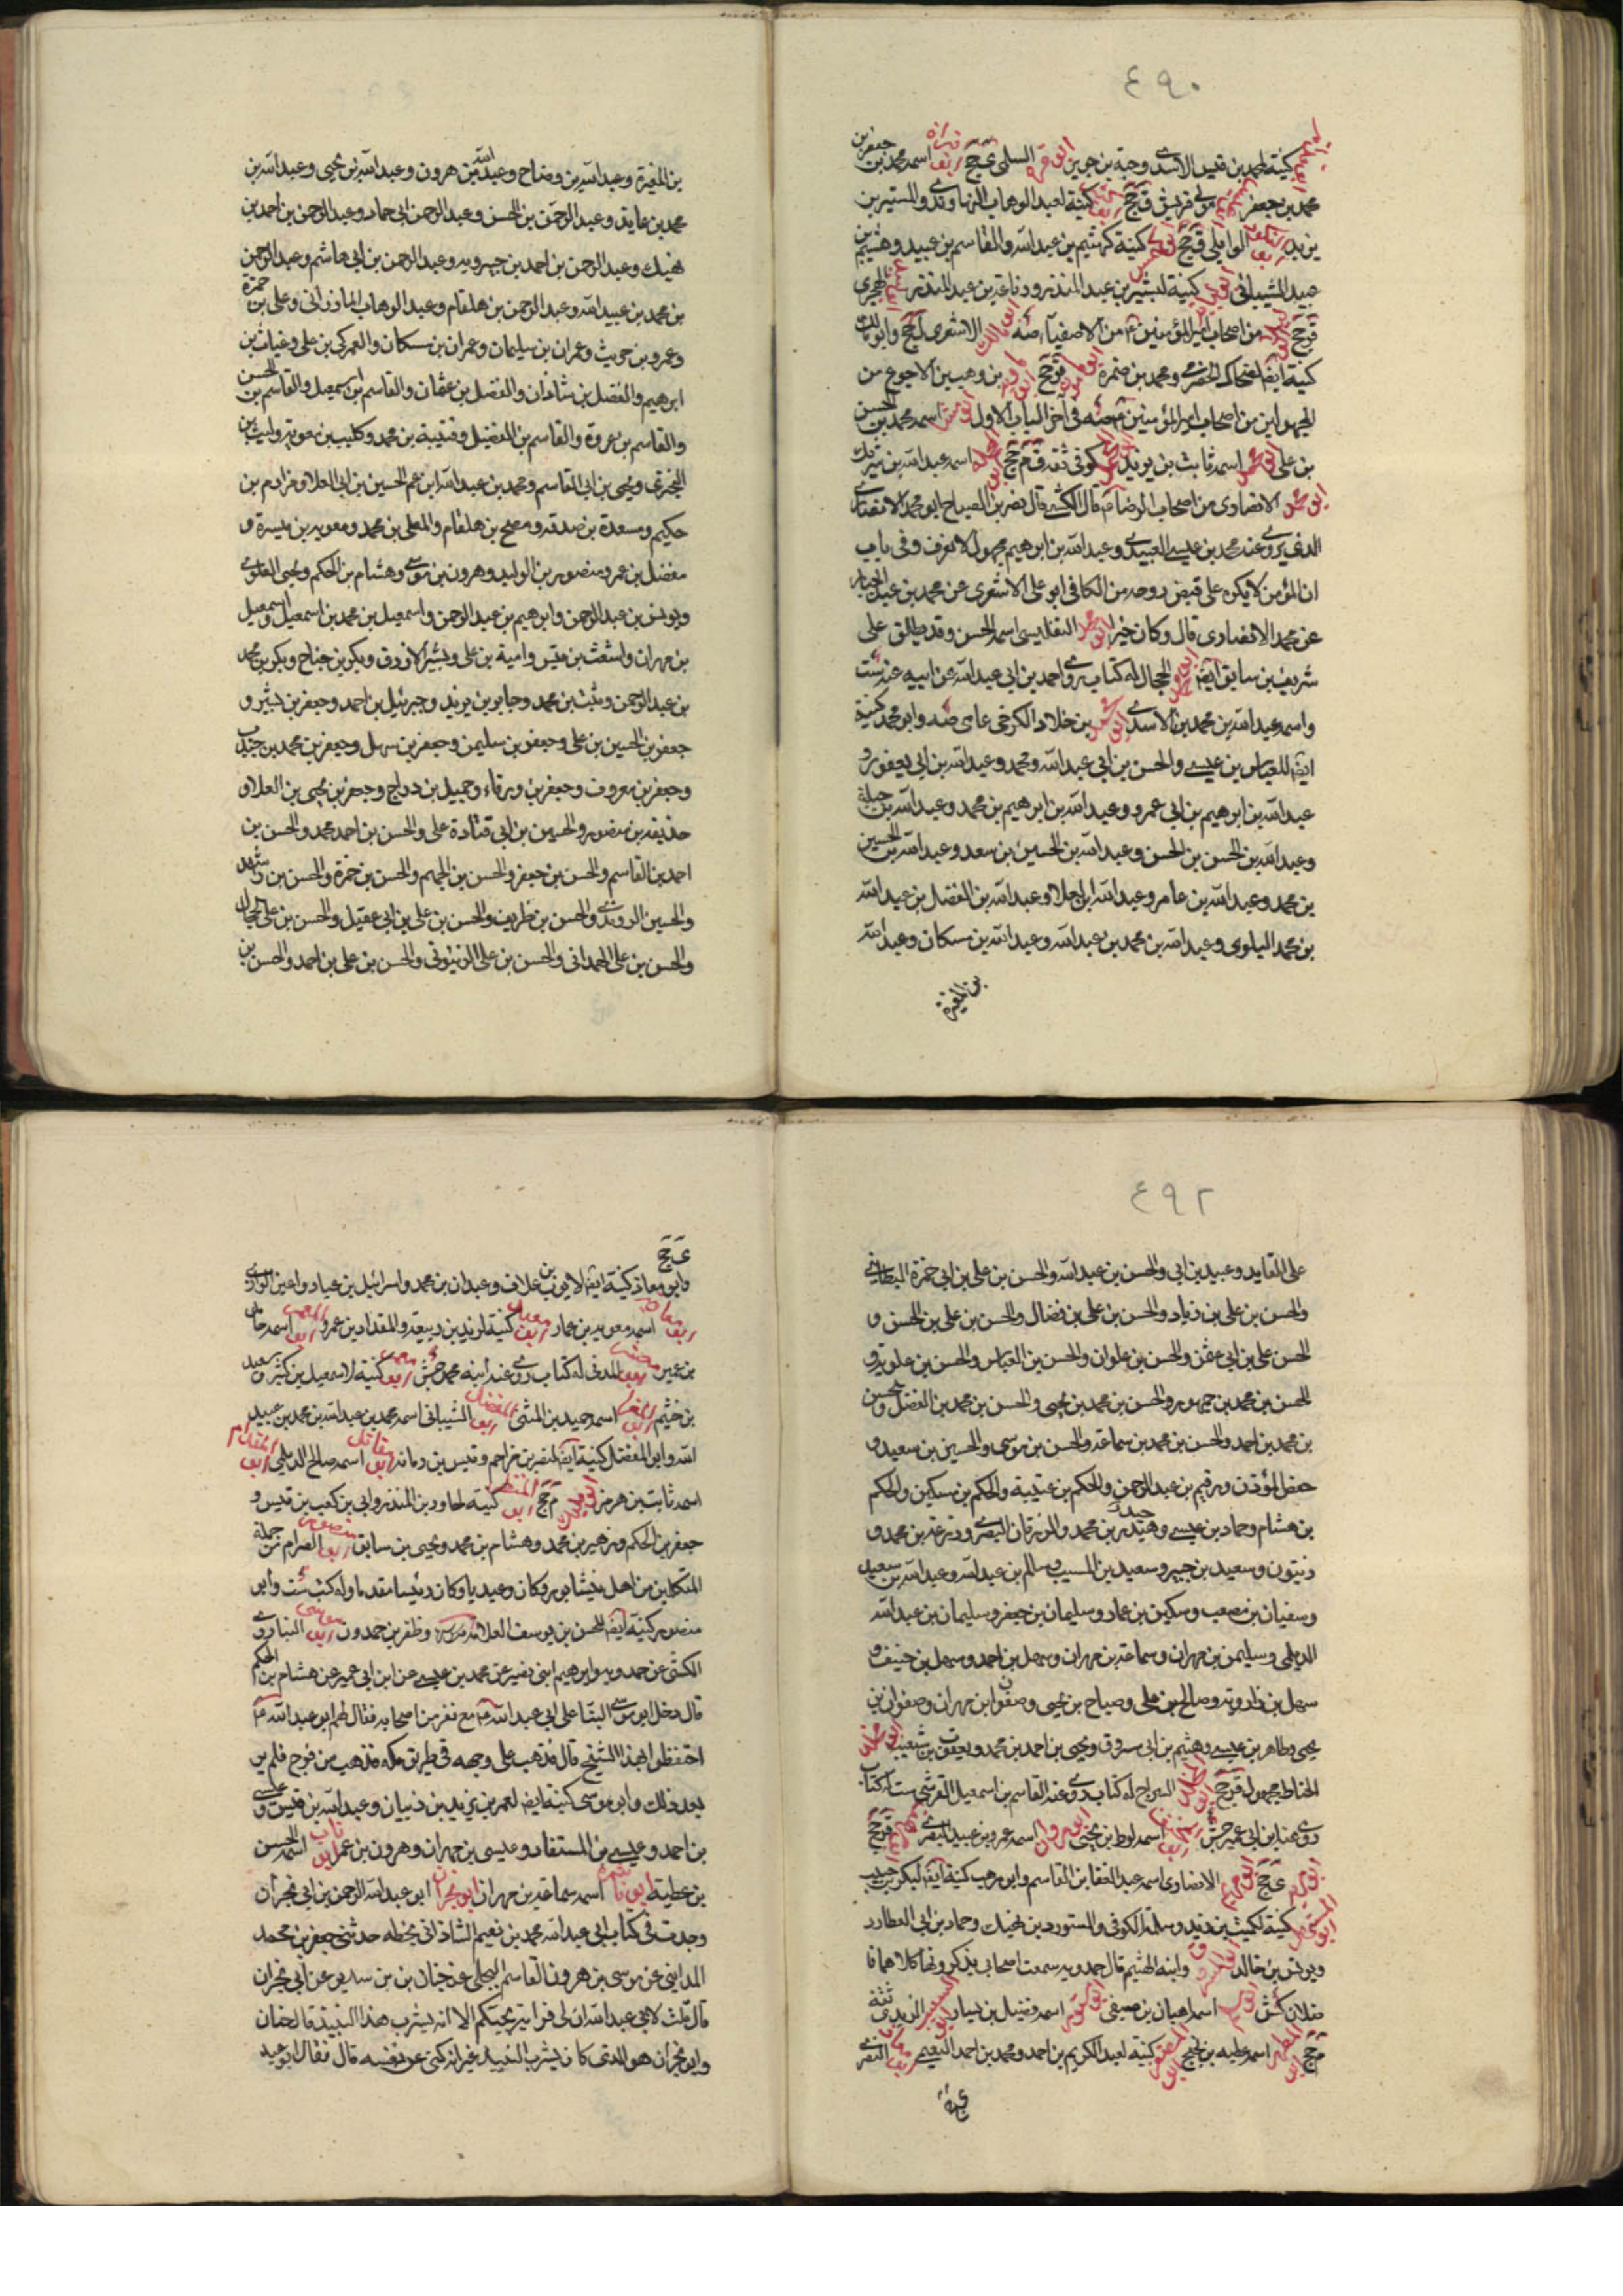 ٤٩٠
كنية لمحمد بن قيس الاسدى وحبة بن جوين السلمى اسمه محمد بن جعفر بن
محمد بن جعفر مولى قريش ق جخ كنية لعبد الوهاب النهاوندى والمستنير بن
يزيد الوابلى ق جخ كنية كهيثم بن عبد الله والقاسم بن عبيد وهشيم بن
عبيد الشيبانى كنية لبشير بن عبد المنذر ورفاعة بن عبد المنذر الهجرى
ق جخ من اصحاب امير المؤمنين ع من الاصفياء صه الاشعرى ل جخ وابو مالك
كنية ايضا لضحاك الحضرمى ومحمد بن ضمرة ق جخ بن وهب بن الاجوع من
المجهولين من اصحاب امير المؤمنين ع صه فى آخر الباب الاول اسمه محمد بن الحسن
بن على اسمه ثابت بن يزيد كوفى ثقة ق م جخ اسمه عبد الله بن شريك
الانصارى من اصحاب الرضا ع قال الكشى قال نصر بن الصباح ابو محمد الانصارى
الذى يروى عنه محمد بن عيسى العبيدى وعبد الله بن ابرهيم مجهول لا يعرف وفى باب
ان المؤمن لا يكره على قبض روحه من الكافى ابو على الاشعرى عن محمد بن عبد الجبار
عن محمد الانصارى قال وكان خيرا التفليسى اسمه الحسن وقد يطلق على
شريف بن سابق ايضا الحجال له كتاب روى احمد بن ابى عبد الله عن ابيه عنه ست
واسمه عبد الله بن محمد بن الاسدى بن خلاد الكرخى عامى صه وابو محمد كنية
ايضا للعباس بن عيسى والحسن بن ابى عبد الله ومحمد وعبد الله بن ابى يعفور و
عبد الله بن ابرهيم بن ابى عمرو وعبد الله بن ابرهيم بن محمد وعبد الله بن جبلة
وعبد الله بن الحسن بن الحسن وعبد الله بن الحسين بن سعد وعبد الله بن الحسين
بن محمد وعبد الله بن عامر وعبد الله ابن العلا وعبد الله بن الفضل بن عبد الله
بن محمد البلوى وعبد الله بن محمد بن عبد الله وعبد الله بن مسكان وعبد الله
بن المغيرة
بن المغيرة وعبد الله بن وضاح وعبد الله بن هرون وعبد الله بن يحيى وعبد الله بن
محمد بن عايذ وعبد الرحمن بن الحسن وعبد الرحمن ابى حماد وعبد الرحمن بن احمد بن
نهيك وعبد الرحمن بن احمد بن جبرويه وعبد الرحمن بن ابى هاشم وعبد الرحمن
بن محمد بن عبيد الله وعبد الرحمن بن هلقام وعبد الوهاب المادرانى وعلى بن حمزة
وعمرو بن حريث وعمران بن سليمان وعمران بن مسكان والعمركى بن على وغياث بن
ابرهيم والفضل بن شاذان والفضل بن عثمان والقاسم بن اسمعيل والقاسم بن الحسن
والقاسم بن عروة والقاسم بن الفضيل وقتيبة بن محمد وكليب بن معوية وليث بن
البخترى ويحيى بن ابى القاسم ومحمد بن عبد الله ابن عم الحسين بن ابى العلا ومرازم بن
حكيم ومسعدة بن صدقة ومصبح بن هلقام والمعلى بن محمد ومعوية بن ميسرة و
مفضل بن عمرو منصور بن الوليد وهرون بن موسى وهشام بن الحكم ويحيى العلوى
ويونس بن عبد الرحمن وابرهيم بن عبد الرحمن واسمعيل بن محمد بن اسمعيل واسمعيل
بن مهران واشعث بن قيس وامية بن على وبشر الازرق وبكر بن جناح وبكر بن محمد
بن عبد الرحمن وثبت بن محمد وجابر بن يزيد وجبرئيل بن احمد وجعفر بن بشير و
جعفر بن الحسين بن على وجعفر بن سليمن وجعفر بن سهل وجعفر بن محمد بن جندب
وجعفر بن معروف وجعفر بن ورقاء وجميل بن دراج وجعفر بن يحيى بن العلا و
حذيفة بن منصور والحسين بن ابى قتادة على والحسن بن احمد محمد والحسن بن
احمد بن القاسم والحسن بن جعفر والحسن بن الجهم والحسن بن حمزة والحسن بن راشد
والحسين الروندى والحسن بن ظريف والحسن بن على بن ابى عقيل والحسن بن على الحجال
والحسن بن على الهمدانى والحسن بن على الزيتونى والحسن بن على بن احمد والحسن بن
٤٩٢
على القايد وعبيد بن ابى والحسن بن عبد الله والحسن بن على بن ابى حمزة البطاينى
والحسن بن على بن زياد والحسن بن على بن فضال والحسن بن على بن الحسن و
الحسن على بن ابى عثمن والحسن بن علوان والحسن بن العباس والحسن بن علوية و
الحسن بن محمد بن جمهور والحسن بن محمد بن يحيى والحسن بن محمد بن الفضل والحسين
بن محمد بن احمد والحسن بن محمد بن سماعة والحسن بن موسى والحسين بن سعيد و
المؤذن ورقيم بن عبد الرحمن والحكم بن عتيبة والحكم بن مسكين والحكم
بن هشام وحماد بن عيسى وحيدر بن محمد والزبرقان البصرى وزرعة بن محمد و
زيتون وسعيد بن جبير وسعيد بن المسيب وسالم بن عبد الله وعبد الله بن سعيد
وسفيان بن مصعب وسكين بن عمار وسليمان بن جعفر وسليمان بن عبد الله
الديلمى وسليمن بن مهران وسماعة بن مهران وسهل بن احمد وسهل بن حنيف و
سهل بن زاذويه وصالح بن على وصباح بن يحيى وصفوان بن مهران وصفوان بن
يحيى وطاهر بن عيسى وهيثم بن ابى مسروق ويحيى بن احمد بن محمد ويعقوب بن شعيب
الحناط مجهول ق جخ السراج له كتاب روى عنه القاسم بن اسمعيل القرشى ست له كتاب
روى عنه ابن ابى عمير جش اسمه لوط بن يحيى اسمه عمرو بن عبيد البصرى ق جخ
ى جخ الانصارى اسمه عبد الغفار بن القاسم وابو مريم كنية ايضا لبكر بن حبيب
كنية لكميت بن زيد وسلمة الكوفى والمستورد بن نهيك وحماد بن ابى العطارد
ويونس بن خالد وابنه الهيثم قال حمدويه سمعت اصحابى يذكرونهما كلاهما فا
ضلان كش اسمه اهبان بن صيفى اسمه فضيل بن يسار الزيدى ثقة
م جخ اسمه علبة بن كنية لعبد الكريم بن احمد ومحمد بن احمد النعيمى النصرى
ى جخ
ى جخ
وابو معاذ كنية ايضا لايوب بن علاف وعبدان بن محمد واسرائيل بن عباد واعين الرازى
اسمه معوية بن عمار كنية لزيد بن ربيعة والمقداد بن عمرو اسمه خالد
بن عمير المدنى له كتاب روى عنه ابنه محمد جش كنية لاسمعيل بن كثير وسعيد
بن خثيم اسمه حميد بن المثنى الشيبانى اسمه محمد بن عبد الله بن محمد بن عبيد
الله وابو المفضل كنية ايضا لنصر بن مزاحم وقيس بن رمانة اسمه صالح الديلمى
اسمه ثابت بن هرمز م جخ كنية لجارود بن المنذر وابى بن كعب بن قيس و
جعفر بن الحكم وزهير بن محمد وهشام بن محمد ويحيى بن سابق الصرام من جملة
المتكلمين من اهل نيشابور وكان وعيديا وكان رئيسا مقدما وله كتب ست وابو
منصور كنية ايضا للحسن بن يوسف العلامة وظفر بن حمدون البناء روى
الكشى عن حمدويه وابرهيم ابنى نصير عن محمد بن عيسى عن ابن ابى عمير عن هشام بن الحكم
قال دخل ابو موسى البنا على ابى عبد الله ع مع نفر من اصحابه فقال لهم ابو عبد الله ع
احتفظوا بهذا الشيخ قال فذهب على وجهه فى طريق مكه فذهب من قزح فلم ير
بعد ذلك وابو موسى كنية ايضا لعمر بن يزيد بن ذبيان وعبد الله بن قيس وعيسى
بن احمد وعيسى من المستفاد وعيسى بن مهران وهرون بن عمر اسمه الحسن
بن عطية ابو ناشرة اسمه سماعة بن مهران ابو نجران ابو عبد الله الرحمن بن ابى نجران
وجدت فى كتاب ابى عبد الله محمد بن نعيم الشاذانى بخطه حدثنى جعفر بن محمد
المداينى عن موسى بن هرون القاسم البجلى عن حنان بن من سدير عن ابى نجران
قال قلت لابى عبد الله ان لى قرابة يحبكم الا انه يشرب هذا النبيذ قال حنان
وابو نجران هو الذى كان يشرب النبيذ غير انه كنى عن نفسه قال فقال ابو عبد